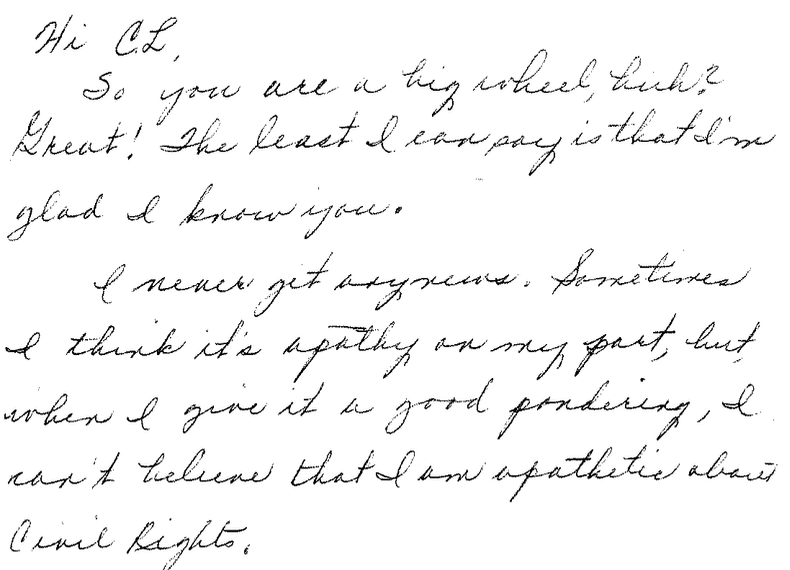 Hi CL,
So you are a big wheel, huh?
Great! The least I can say is that I'm
glad I know you.
I never get any news. Sometimes
I think it's apathy on my part, but,
when I give it a good pondering, I
can't believe that I am apathetic about
Civil Rights.